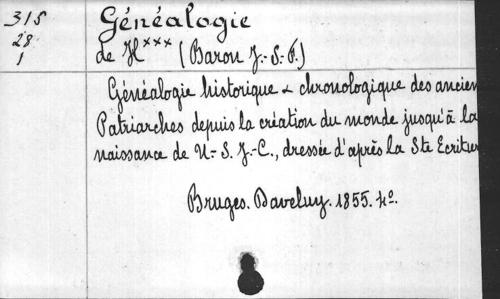 315
28
1
Généalogie
de H*** (Baron J.-S.-F.)
Généalogie historique & chronologique des ancien
Patriarches depuis la création du monde jusqu'à la
naissance de N.-S. J.-C., dressée d'après la Ste Ecritur
Bruges. Daveluy. 1855. 4º.